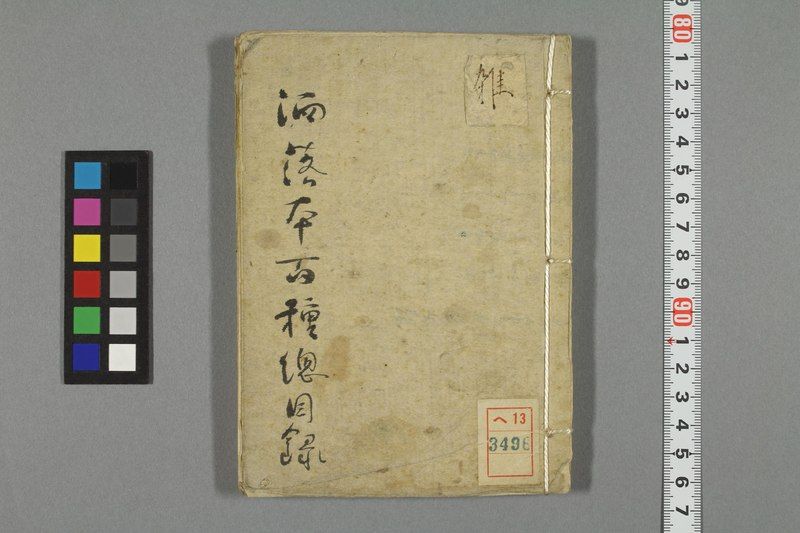 洒落本百種総目録
雑
ヘ 13
3496
80
1
2
3
4
5
6
7
8
9
90
1
2
3
4
5
6
7